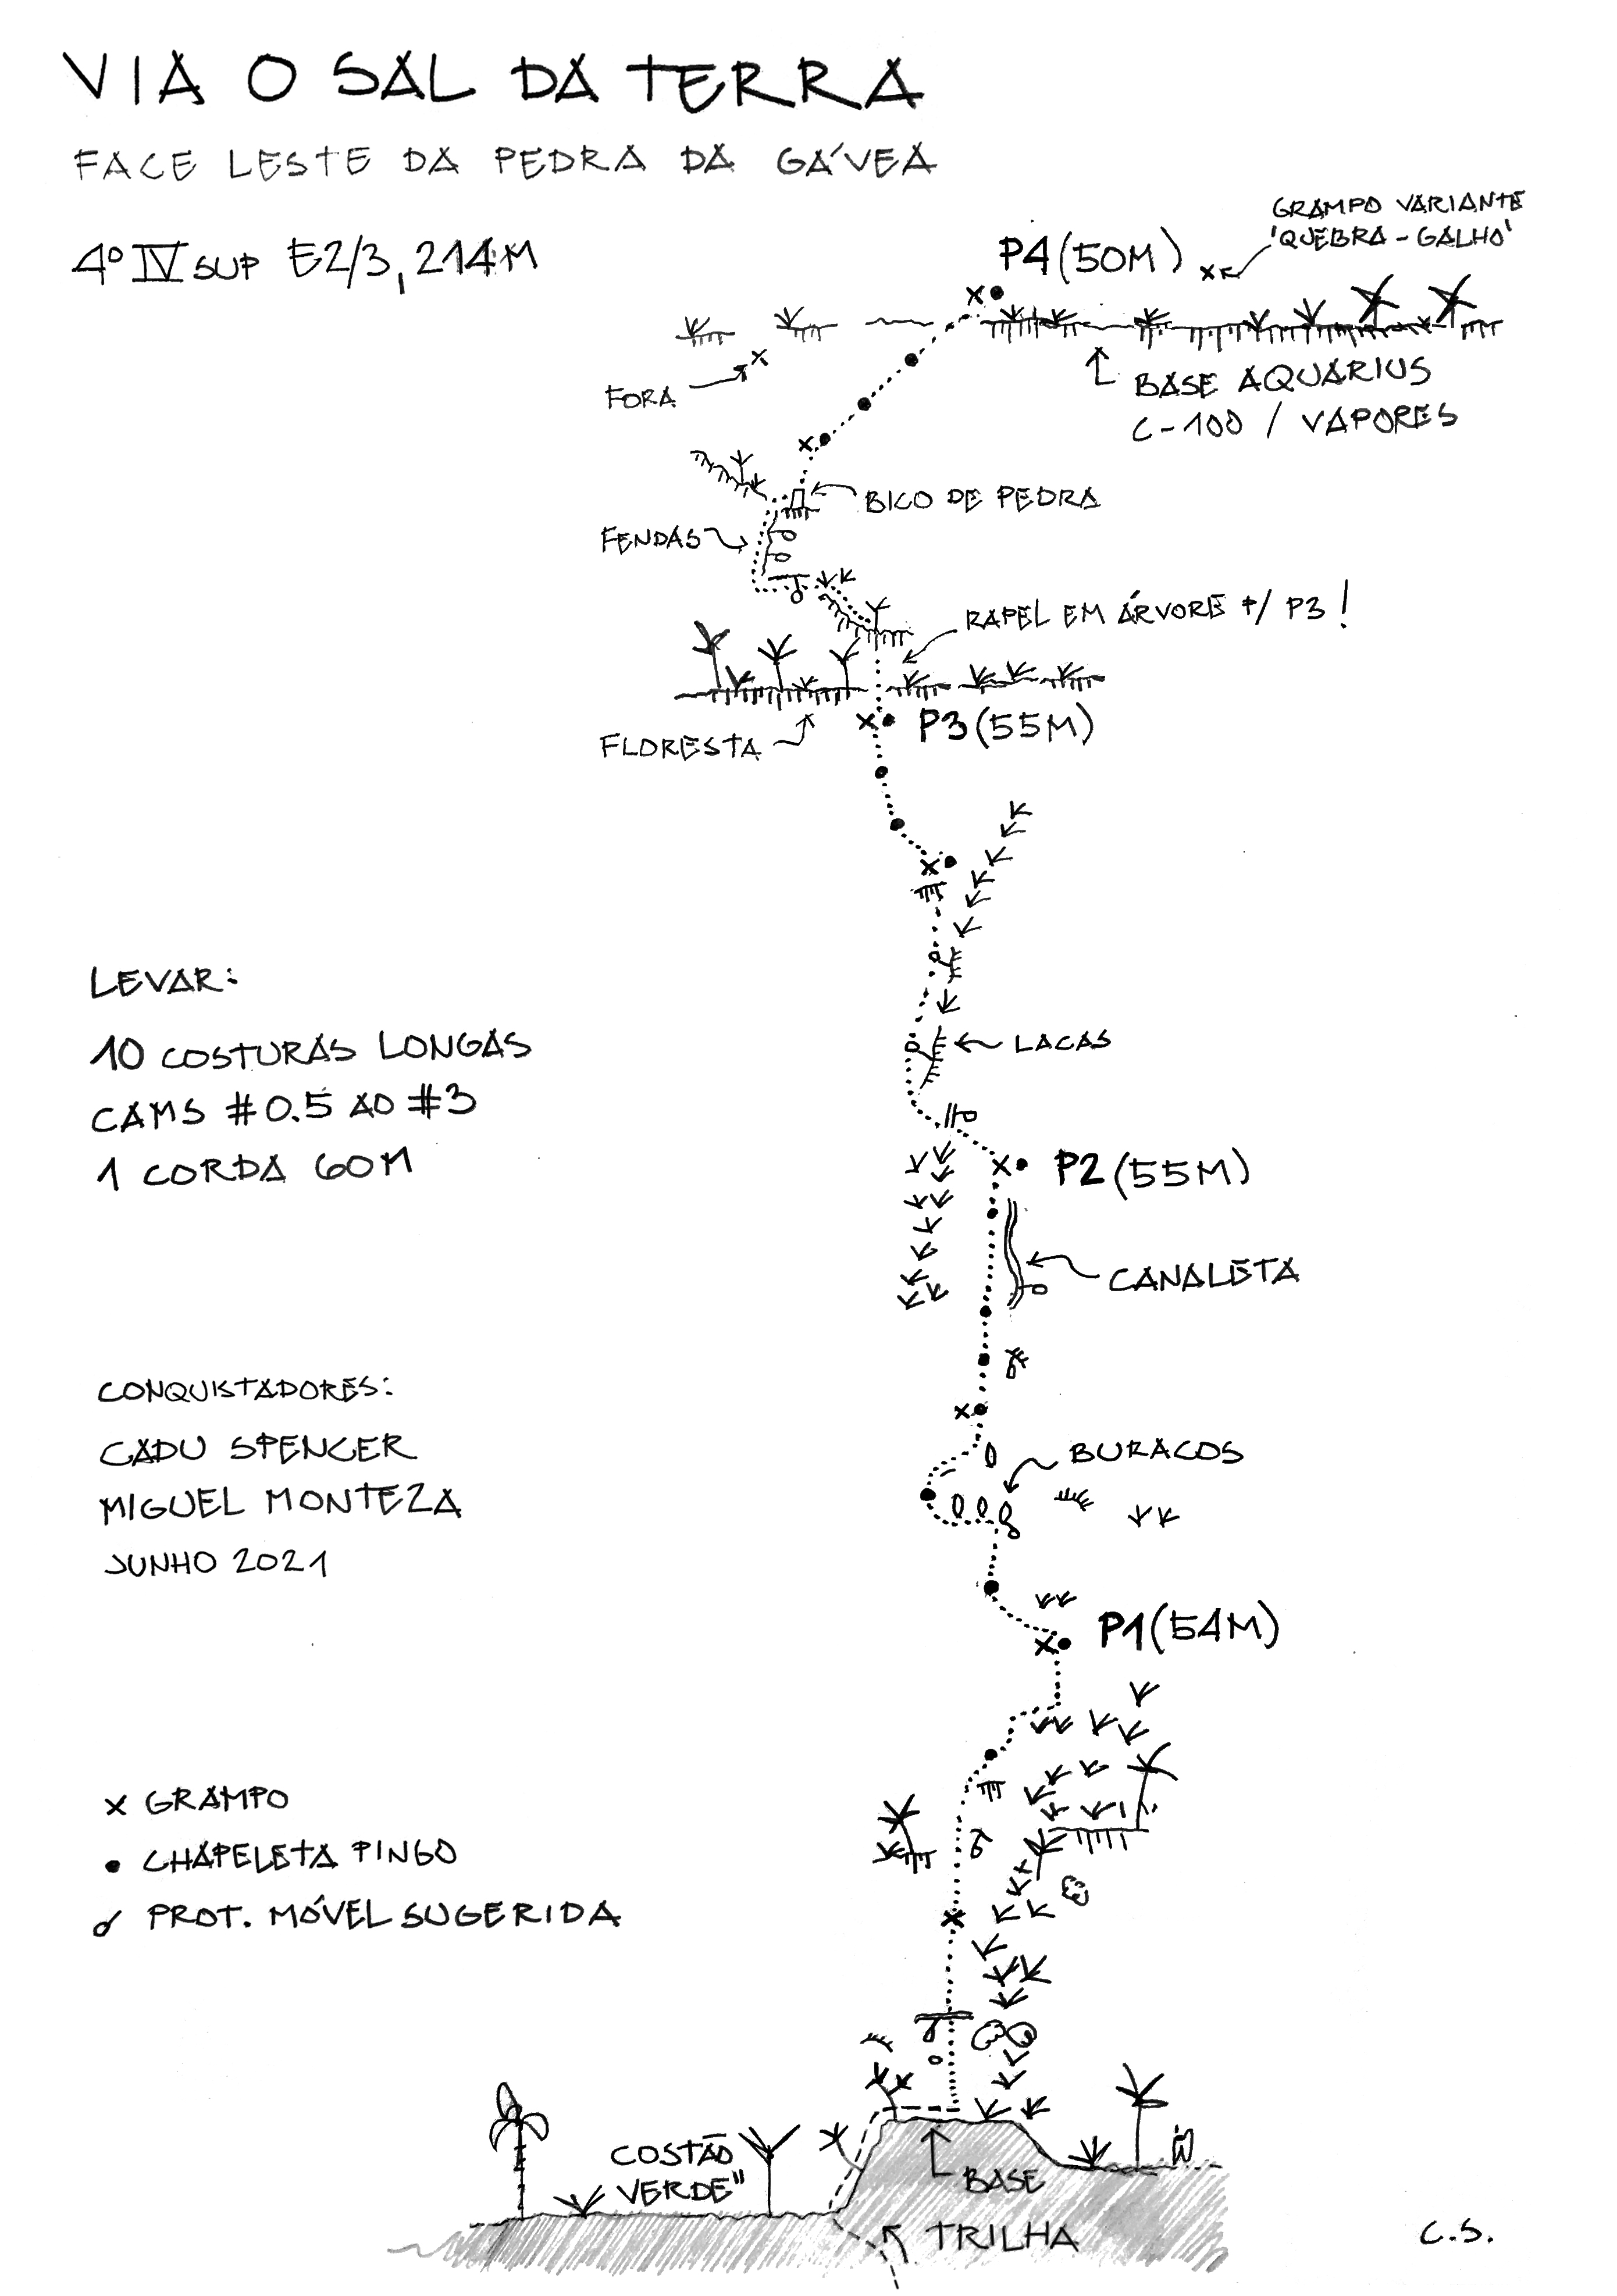 VIA O SAL DA TERRA
FACE LESTE DA PEDRA DA GÁVEA
4º IV SUP E2/3, 214M
GRAMPO VARIANTE
'QUEBRA-GALHO'
P4 (50M)
FORA
BASE AQUARIUS
C-100 / VAPORES
BICO DE PEDRA
FENDAS
RAPEL EM ÁRVORE P/ P3!
P3 (55M)
FLORESTA
LEVAR:
10 COSTURAS LONGAS
CAMS #0.5 AO #3
1 CORDA 60M
LACAS
P2 (55M)
CANALETA
CONQUISTADORES:
CADU SPENCER
MIGUEL MONTEZA
JUNHO 2021
BURACOS
P1 (54M)
x GRAMPO
• CHAPELETA PINGO
PROT. MÓVEL SUGERIDA
COSTÃO
VERDE"
BASE
TRILHA
C.S.